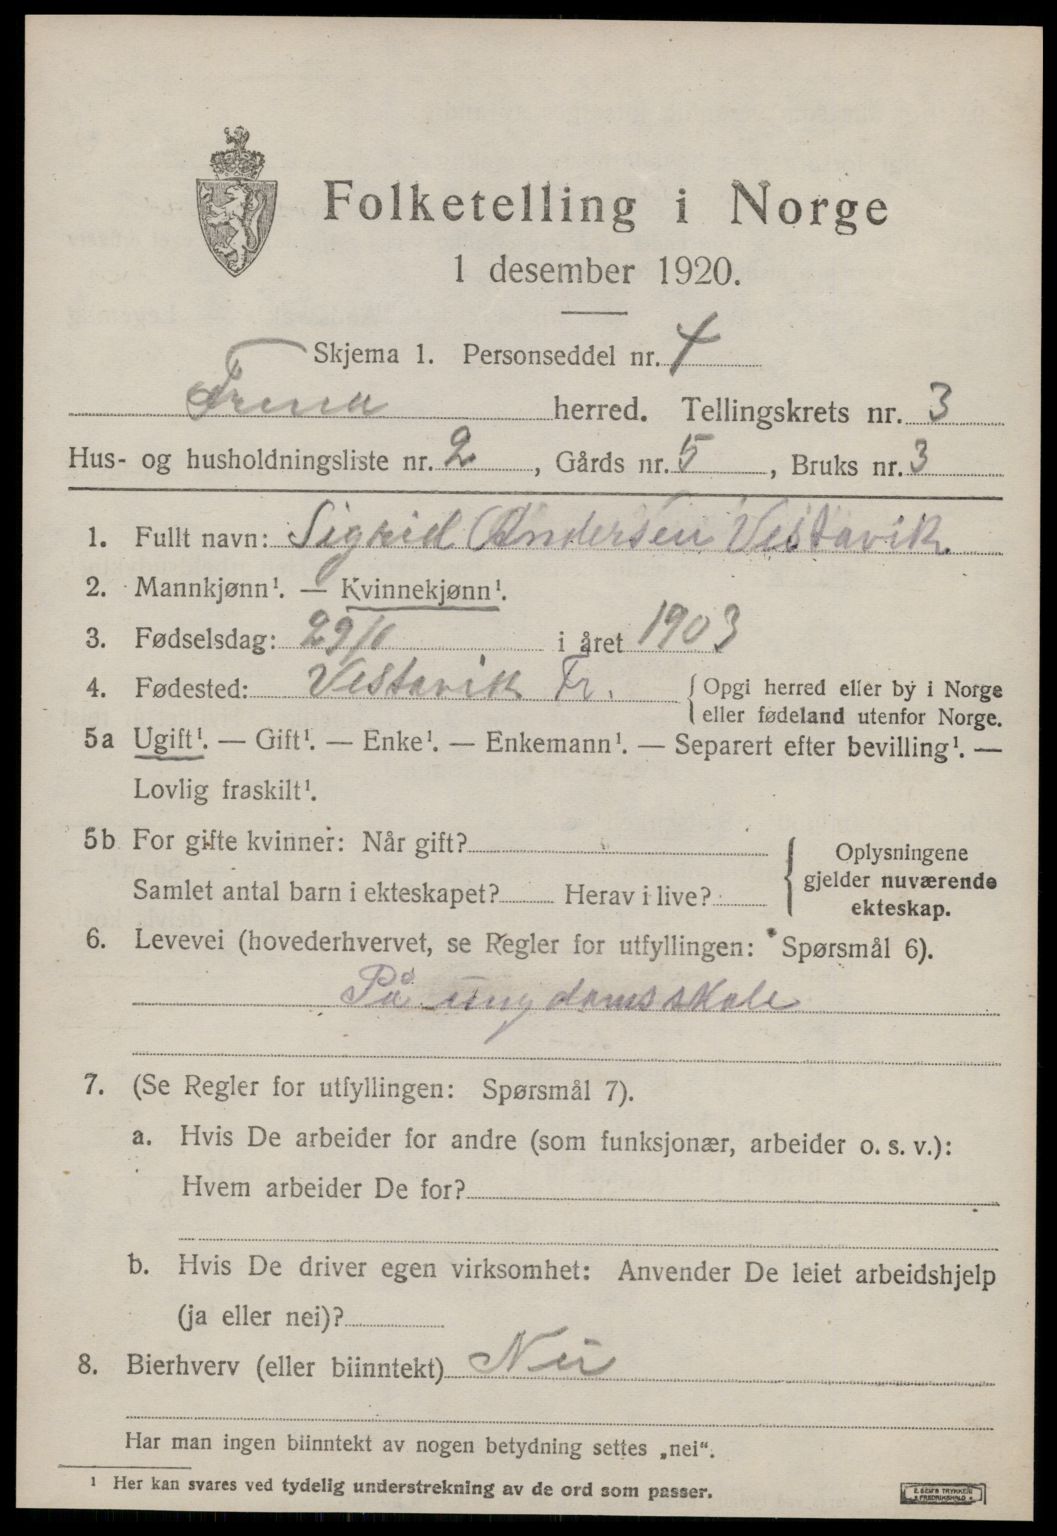 Folketelling i Norge
1 desember 1920.
Skjema 1. Personseddel nr. 4
Frena herred. Tellingskrets nr. 3
Hus- og husholdningsliste nr. 2, Gårds nr. 5, Bruks nr. 3
1. Fullt navn: Sigrid Andersen Vestavik.
2. Mannkjønn¹. — Kvinnekjønn¹.
3. Fødselsdag: i året 1903
4. Fødested: Vestavik Fr. { Opgi herred eller by i Norge
eller fødeland utenfor Norge.
5a Ugift¹. — Gift¹. — Enke¹. — Enkemann¹. — Separert efter bevilling¹. —
Lovlig fraskilt¹.
5b For gifte kvinner: Når gift? { Oplysningene
gjelder nuværende
ekteskap.
Samlet antal barn i ekteskapet? Herav i live?
6. Levevei (hovederhvervet, se Regler for utfyllingen: Spørsmål 6).
På ungdomsskole
7. (Se Regler for utfyllingen: Spørsmål 7).
a. Hvis De arbeider for andre (som funksjonær, arbeider o. s. v.):
Hvem arbeider De for?
b. Hvis De driver egen virksomhet: Anvender De leiet arbeidshjelp
(ja eller nei)?
8. Bierhverv (eller biinntekt) Nei
Har man ingen biinntekt av nogen betydning settes „nei“.
¹ Her kan svares ved tydelig understrekning av de ord som passer.